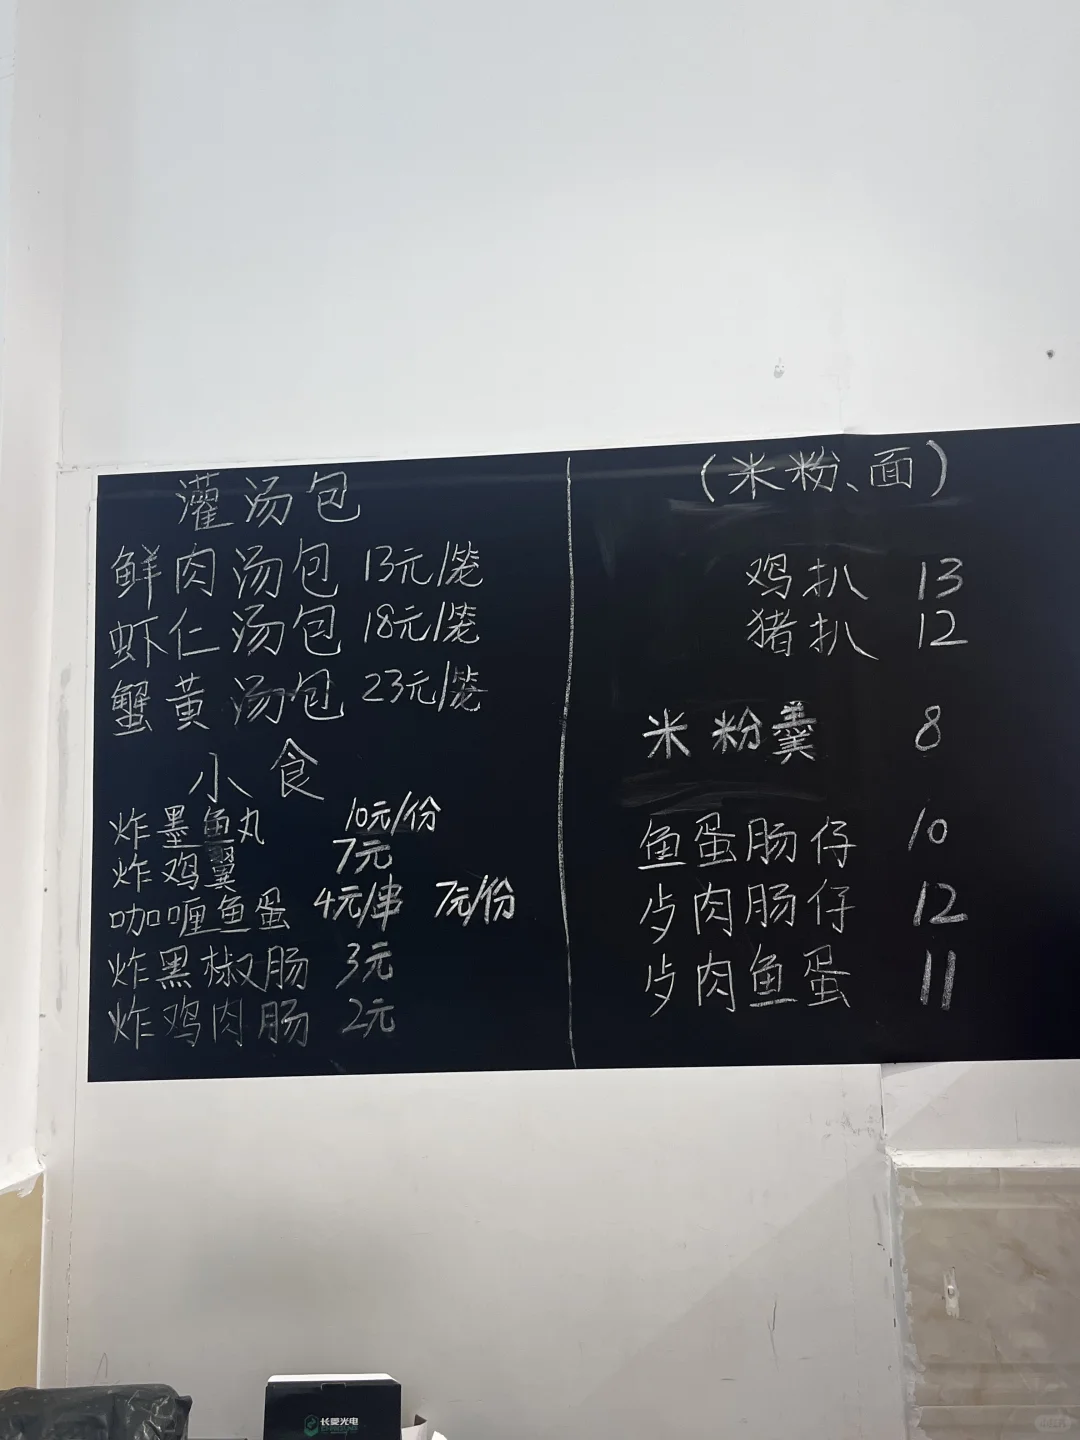 灌汤包
鲜肉汤包 13元/笼
虾仁汤包 18元/笼
蟹黄汤包 23元/笼
小食
炸墨鱼丸 10元/份
炸鸡翼 7元
咖喱鱼蛋 4元/串 7元/份
炸黑椒肠 3元
炸鸡肉肠 2元
(米粉、面)
鸡扒 13
猪扒 12
米粉羹 8
鱼蛋肠仔 10
肉肠仔 12
肉鱼蛋 11
长菱光电